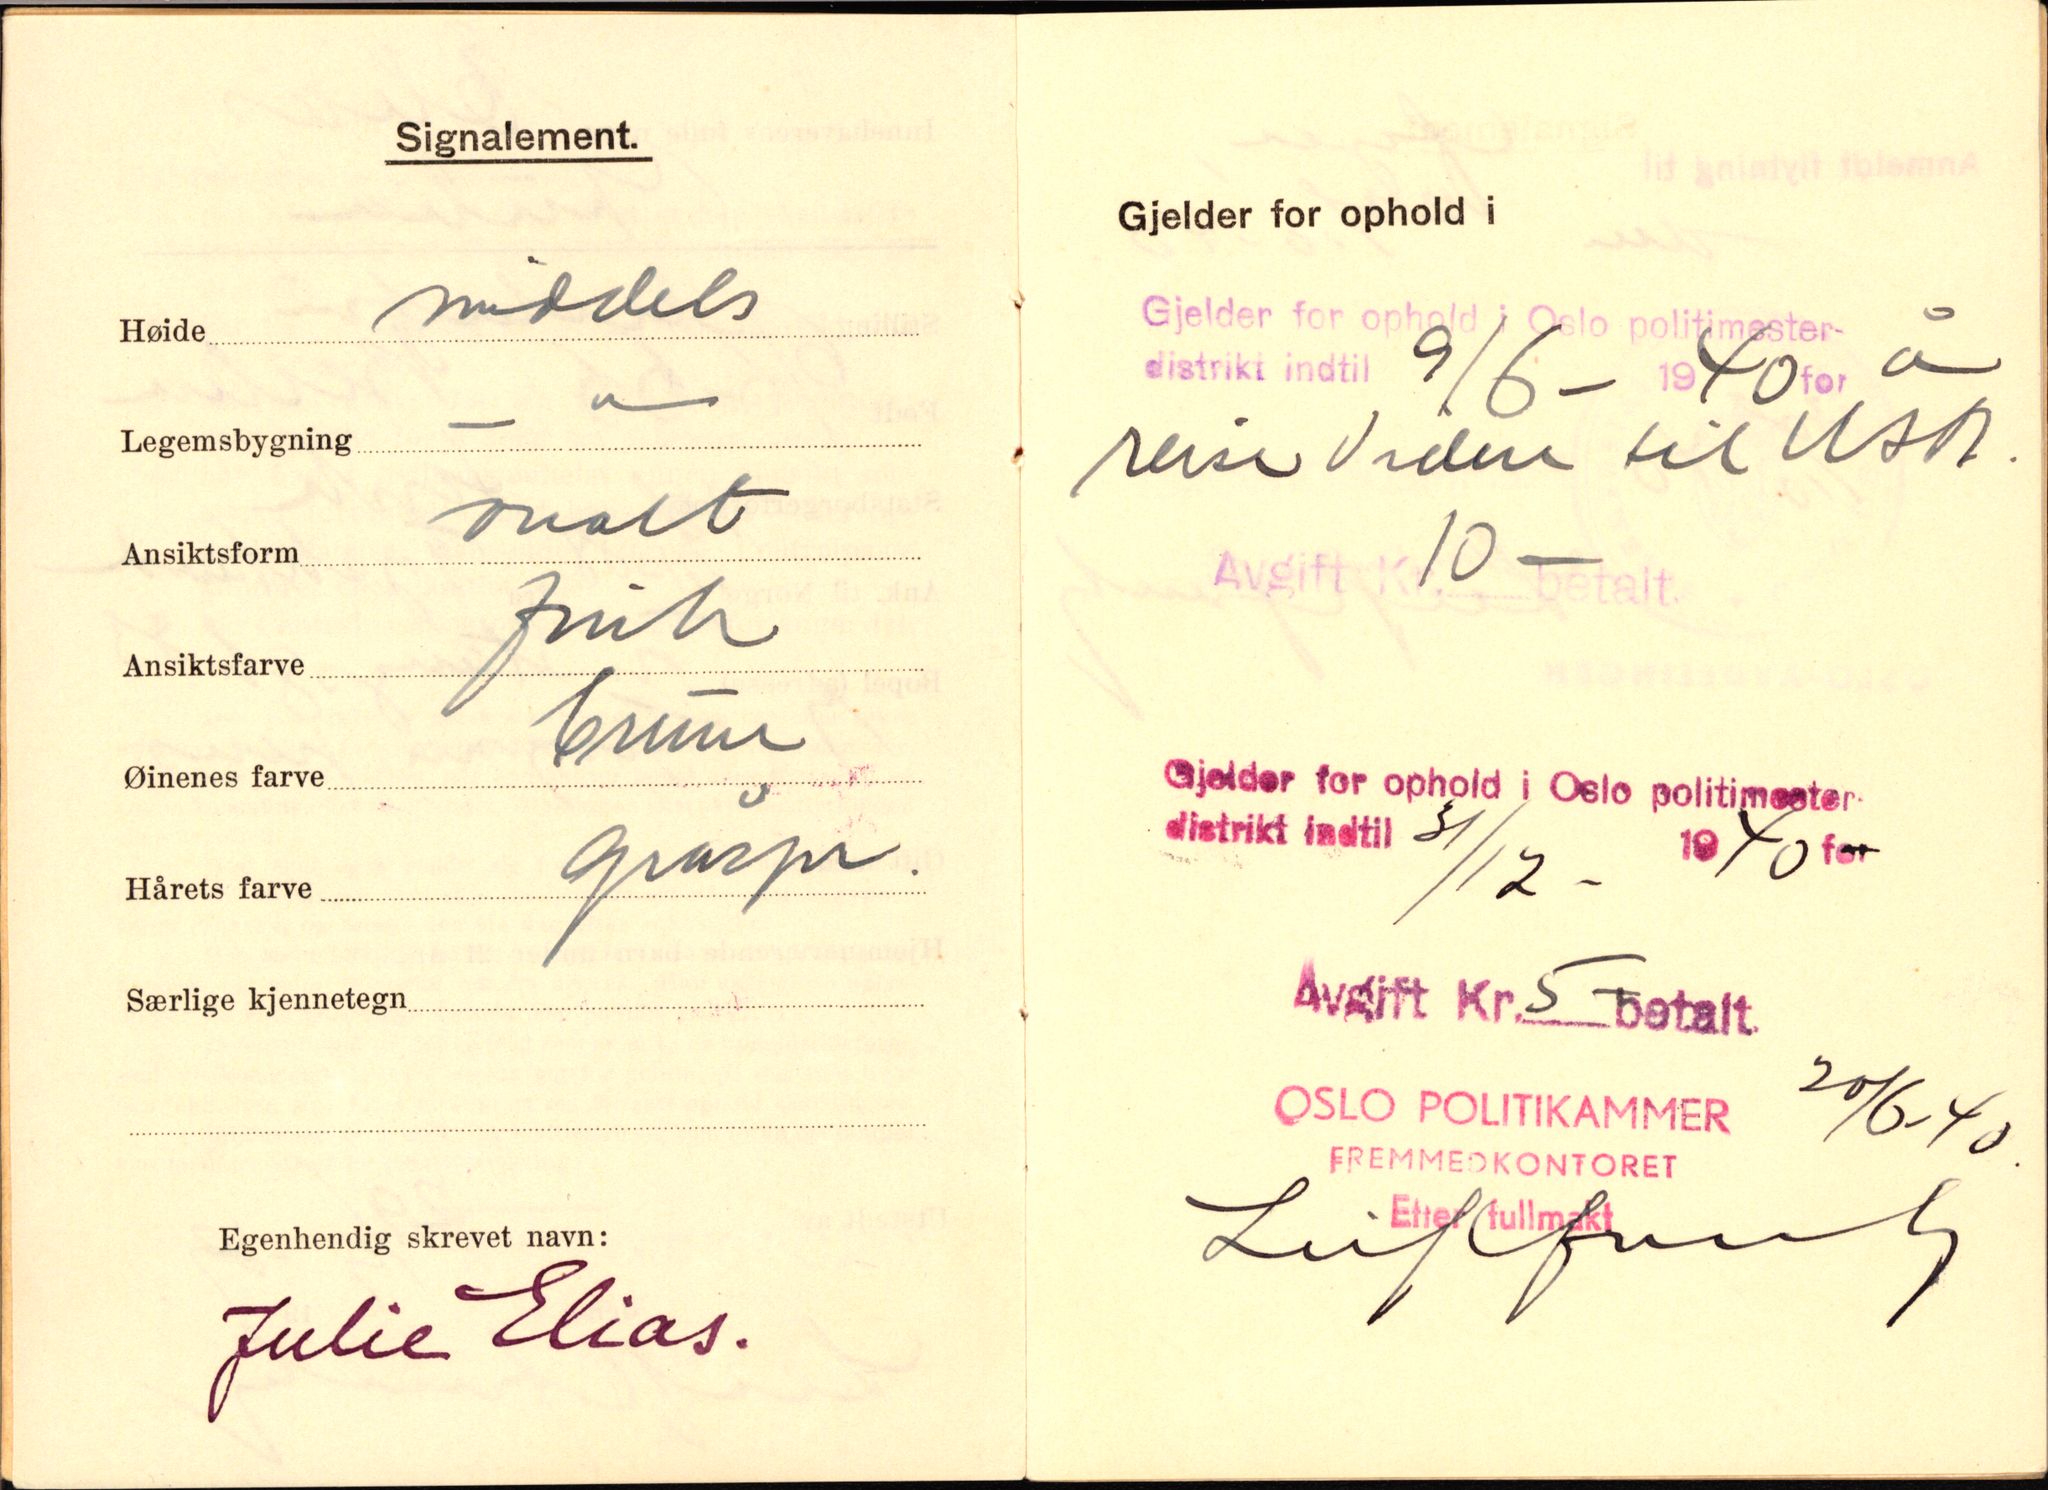 Signalement.
Høide middels
Legemsbygning — " —
Ansiktsform ovalt
Ansiktsfarve frisk
Øinenes farve brune
Hårets farve gråspr.
Særlige kjennetegn
Egenhendig skrevet navn:
Julie Elias.
Gjelder for ophold i
Gjelder for ophold i Oslo politimester-
distrikt indtil 9/6- 1940 for å
reise videre til USA.
Avgift Kr. 10 — betalt.
Gjelder for ophold i Oslo politimester-
distrikt indtil 31/12- 1940 for
Avgift Kr. 5 — betalt.
OSLO POLITIKAMMER 20/6-40.
FREMMEDKONTORET
Etter fullmakt